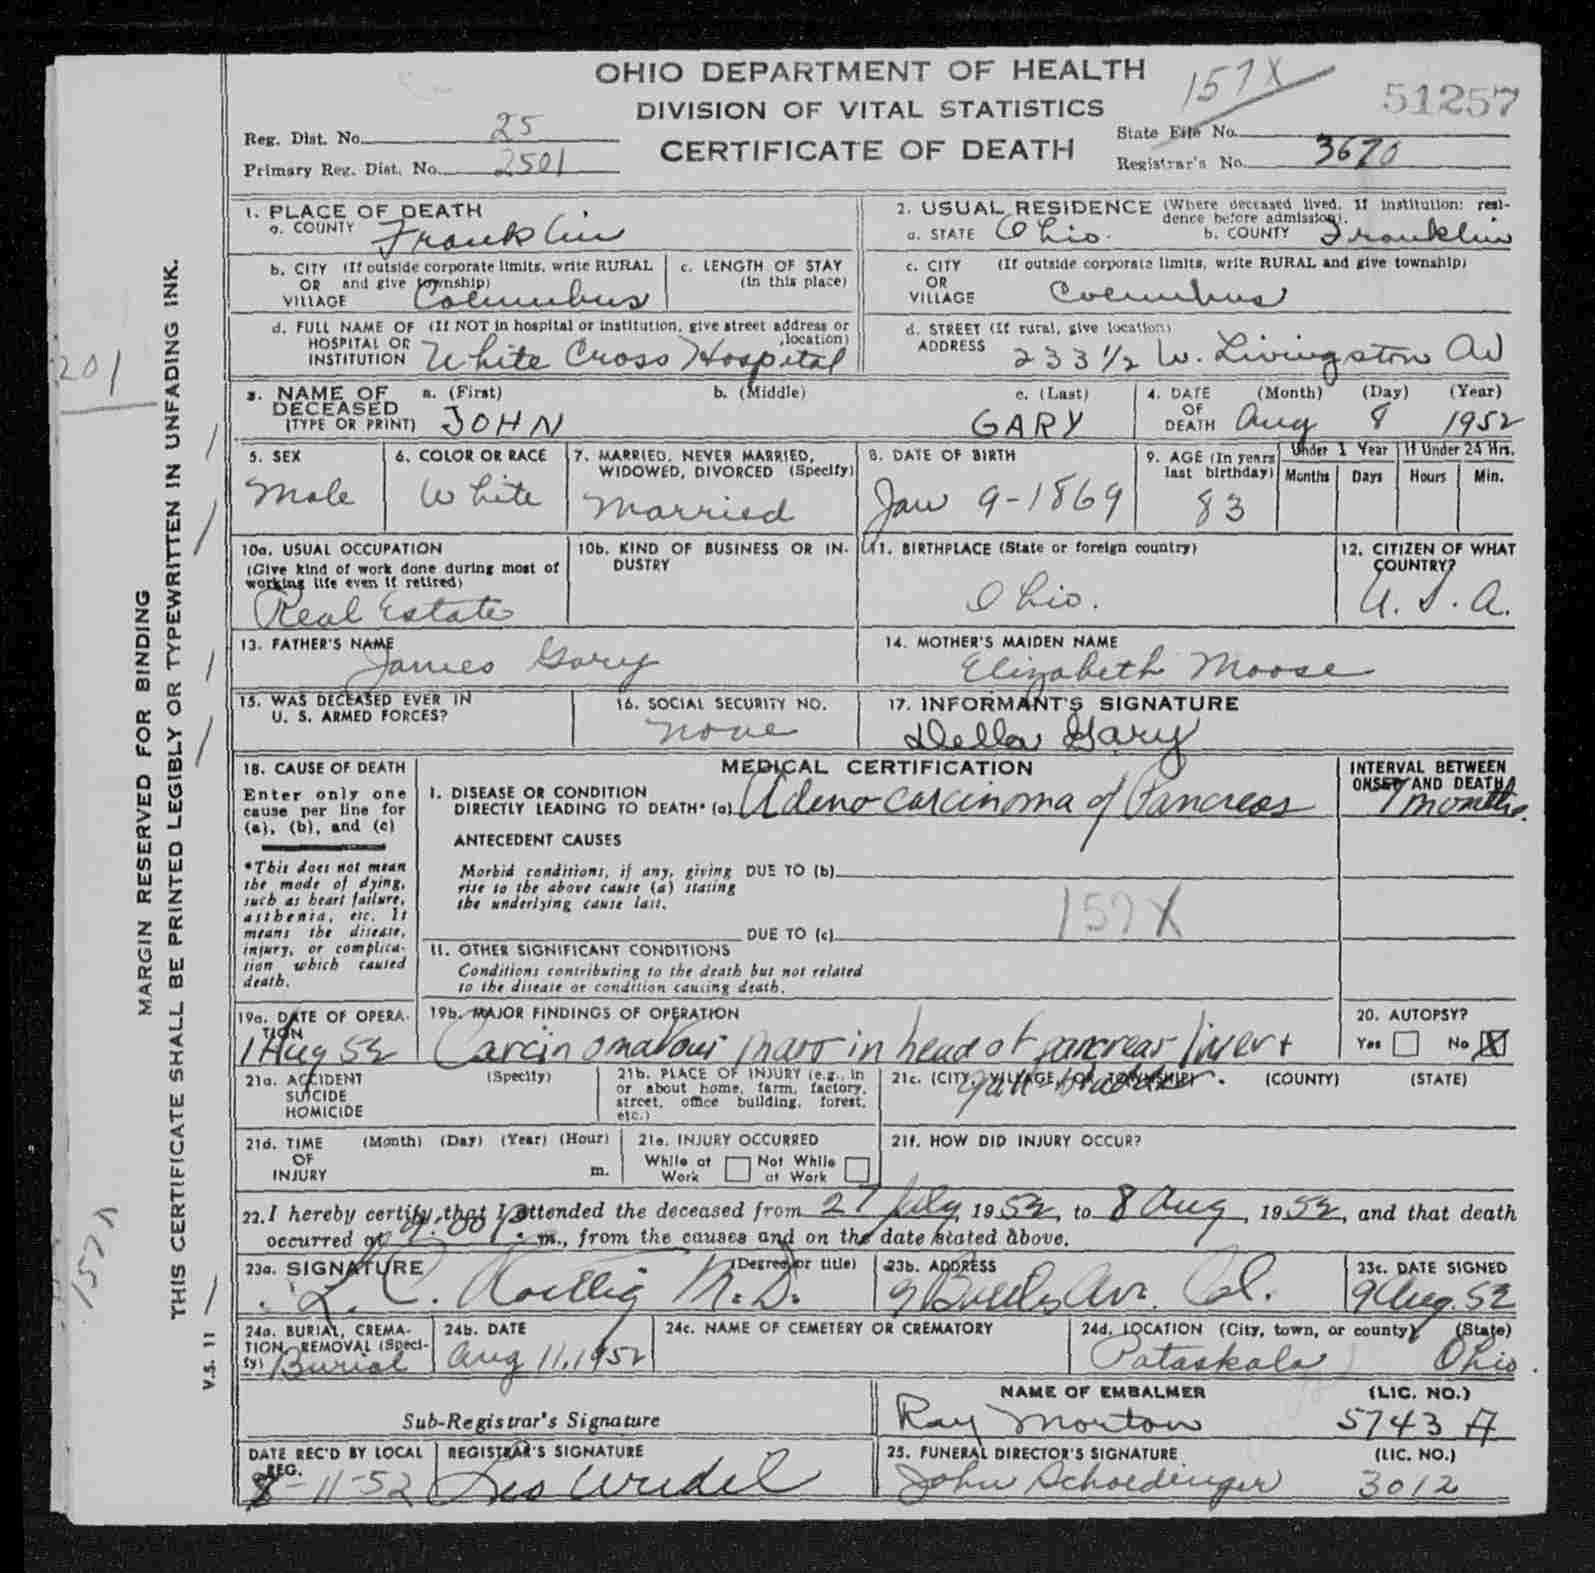 OHIO DEPARTMENT OF HEALTH
DIVISION OF VITAL STATISTICS
CERTIFICATE OF DEATH
157X
51257
Reg. Dist. No. 25
Primary Reg. Dist. No. 2501
State File No.
Registrar's No. 3670
1. PLACE OF DEATH
a. COUNTY Franklin
b. CITY (If outside corporate limits, write RURAL
OR and give township)
VILLAGE Columbus
c. LENGTH OF STAY
(in this place)
d. FULL NAME OF (If NOT in hospital or institution, give street address or
HOSPITAL OR location)
INSTITUTION White Cross Hospital
2. USUAL RESIDENCE (Where deceased lived. If institution: resi-
dence before admission).
a. STATE Ohio. b. COUNTY Franklin
c. CITY (If outside corporate limits, write RURAL and give township)
OR
VILLAGE Columbus
d. STREET (If rural, give location)
ADDRESS 233 1/2 W. Livingston Av
3. NAME OF DECEASED (TYPE OR PRINT)
a. (First) JOHN
b. (Middle)
c. (Last) GARY
4. DATE OF DEATH (Month) (Day) (Year)
Aug 8 1952
5. SEX
Male
6. COLOR OR RACE
White
7. MARRIED, NEVER MARRIED,
WIDOWED, DIVORCED (Specify)
Married
8. DATE OF BIRTH
Jan 9-1869
9. AGE (In years
last birthday)
83
Under 1 Year
Months Days
If Under 24 Hrs.
Hours Min.
10a. USUAL OCCUPATION
(Give kind of work done during most of
working life even if retired)
Real Estate
10b. KIND OF BUSINESS OR IN-
DUSTRY
11. BIRTHPLACE (State or foreign country)
Ohio.
12. CITIZEN OF WHAT
COUNTRY?
U. S. A.
13. FATHER'S NAME
James Gary
14. MOTHER'S MAIDEN NAME
Elizabeth Moose
15. WAS DECEASED EVER IN
U. S. ARMED FORCES?
16. SOCIAL SECURITY NO.
none
17. INFORMANT'S SIGNATURE
Della Gary
18. CAUSE OF DEATH
Enter only one
cause per line for
(a), (b), and (c)
*This does not mean
the mode of dying,
such as heart failure,
asthenia, etc. It
means the disease,
injury, or complica-
tion which caused
death.
MEDICAL CERTIFICATION
I. DISEASE OR CONDITION
DIRECTLY LEADING TO DEATH* (a) Adeno carcinoma of Pancreas
ANTECEDENT CAUSES
Morbid conditions, if any, giving DUE TO (b)
rise to the above cause (a) stating
the underlying cause last.
157X
DUE TO (c)
II. OTHER SIGNIFICANT CONDITIONS
Conditions contributing to the death but not related
to the disease or condition causing death.
INTERVAL BETWEEN
ONSET AND DEATH
months.
19a. DATE OF OPERA-
TION
1 Aug 52
19b. MAJOR FINDINGS OF OPERATION
Carcinomatous mass in head of pancreas liver +
gall bladder.
20. AUTOPSY?
Yes No X
21a. ACCIDENT (Specify)
SUICIDE
HOMICIDE
21b. PLACE OF INJURY (e.g., in
or about home, farm, factory,
street, office building, forest,
etc.)
21c. (CITY, VILLAGE, OR TOWNSHIP) (COUNTY) (STATE)
21d. TIME (Month) (Day) (Year) (Hour)
OF
INJURY m.
21e. INJURY OCCURRED
While at Work
Not While at Work
21f. HOW DID INJURY OCCUR?
22. I hereby certify that I attended the deceased from 27 July, 1952, to 8 Aug, 1952, and that death
occurred at 9:00 P. m., from the causes and on the date stated above.
23a. SIGNATURE (Degree or title)
L. C. M.D.
23b. ADDRESS
9 Buttles Ave. Col.
23c. DATE SIGNED
9 Aug. 52
24a. BURIAL, CREMA-
TION, REMOVAL (Speci-
fy) Burial
24b. DATE
Aug 11, 1952
24c. NAME OF CEMETERY OR CREMATORY
24d. LOCATION (City, town, or county) (State)
Pataskala Ohio.
Sub-Registrar's Signature
NAME OF EMBALMER (LIC. NO.)
Ray Morton 5743 A
DATE REC'D BY LOCAL
REG.
8-11-52
REGISTRAR'S SIGNATURE
25. FUNERAL DIRECTOR'S SIGNATURE (LIC. NO.)
John Schoedinger 3012
MARGIN RESERVED FOR BINDING
THIS CERTIFICATE SHALL BE PRINTED LEGIBLY OR TYPEWRITTEN IN UNFADING INK.
V.S. 11
201